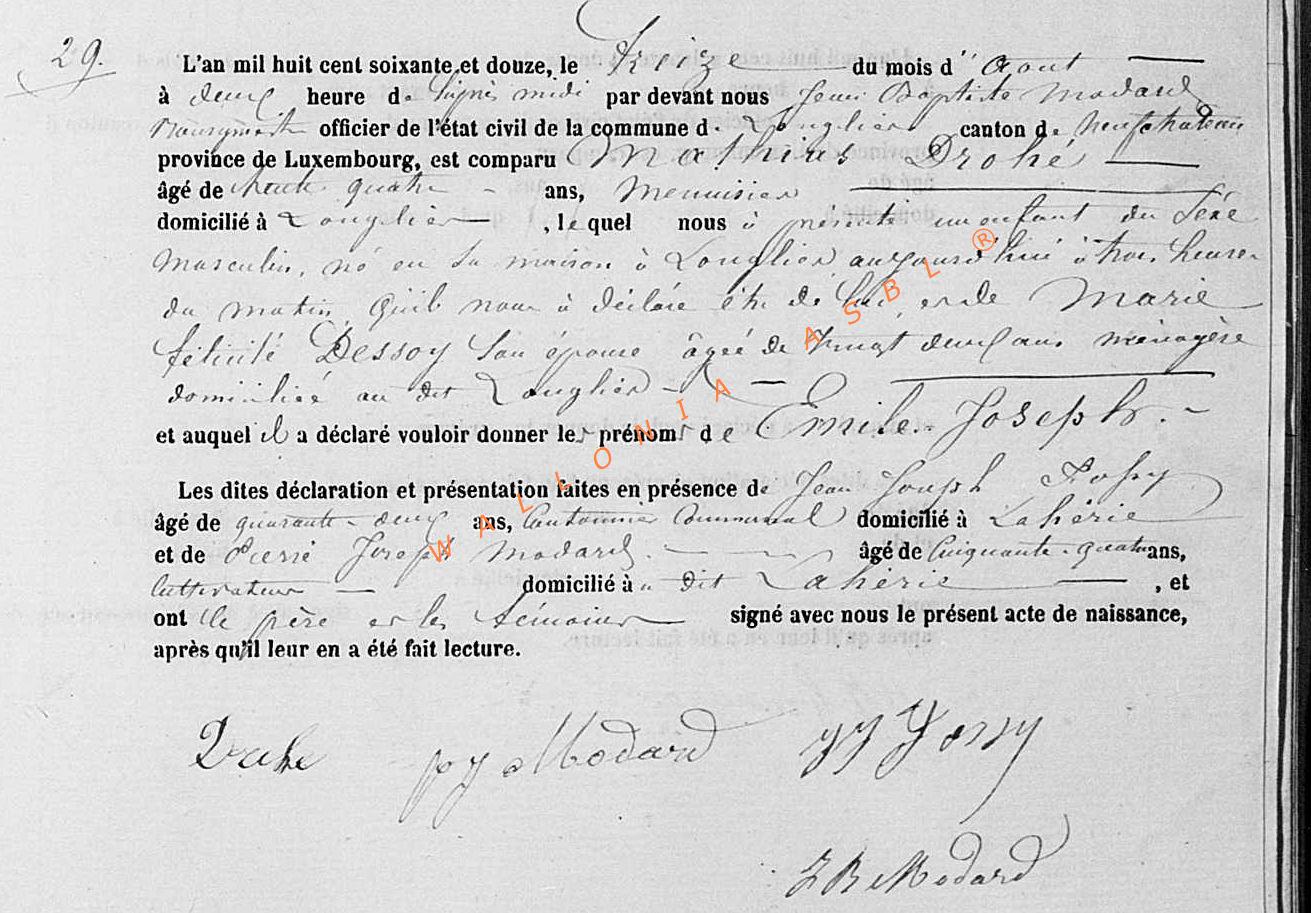 29.
L'an mil huit cent soixante et douze, le Treize du mois d' Aout
à deux heure de l'après midi par devant nous Jean Baptiste Modard
Bourgmestre officier de l'état civil de la commune d. Longlier canton de Neufchateau
province de Luxembourg, est comparu Mathias Drohé
âgé de trente quatre ans, Menuisier
domicilié à Longlier , le quel nous à présenté un enfant du Sexe
Masculin, né en sa maison à Longlier aujourd'hui à trois heures
du matin, qu'il nous à déclaré être de lui et de Marie
félicité Dessoy son épouse âgée de vingt deux ans ménagère
domiciliée au dit Longlier
et auquel il a déclaré vouloir donner les prénoms de Emile Joseph.
Les dites déclaration et présentation faites en présence de Jean Joseph
âgé de quarante deux ans, Cantonnier Communal domicilié à Lahérie
et de Pierre Joseph Modard âgé de Cinquante quatre ans,
Cultivateur domicilié à u dit Lahérie , et
ont le père et les témoins signé avec nous le présent acte de naissance,
après qu'il leur en a été fait lecture.
Drohe pJ Modard JJ
JB Modard
WALLONIA ASBL ®